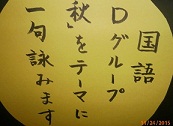 国語
Dグループ
秋」をテーマに
一句詠みます
11/24/2015